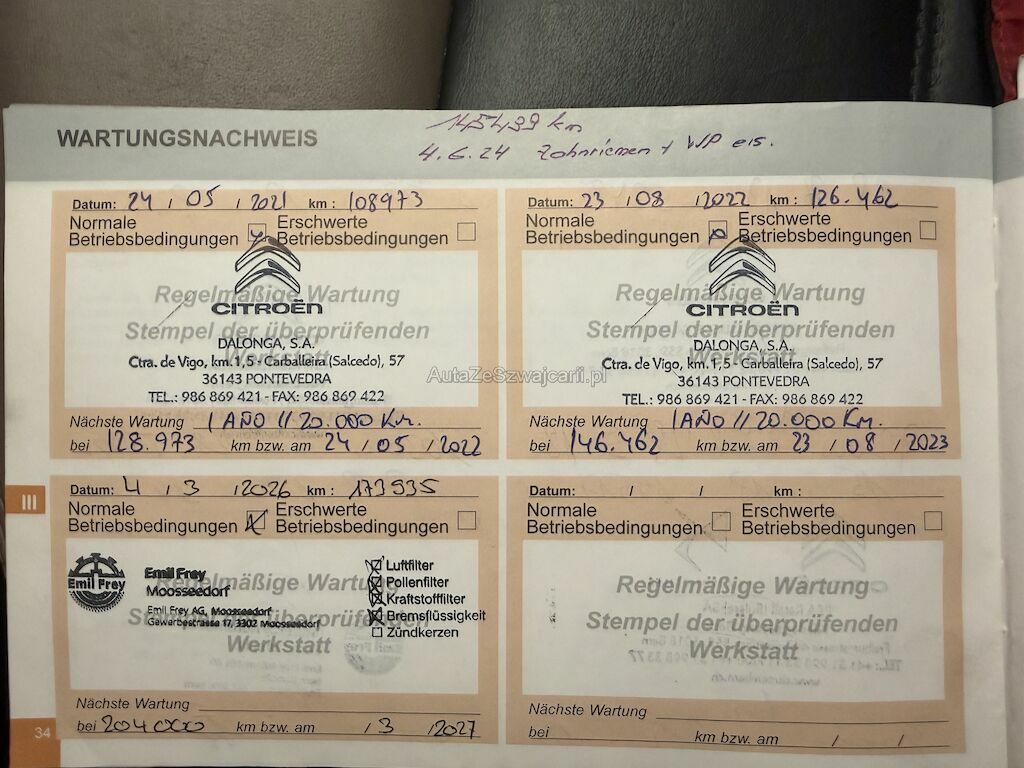 WARTUNGSNACHWEIS
145499 km
4.6.24 Zahnriemen + WP ers.
Datum: 24 / 05 / 2021 km : 108973
Normale Betriebsbedingungen
Erschwerte Betriebsbedingungen
Regelmäßige Wartung
CITROËN
Stempel der überprüfenden
DALONGA, S.A.
Werkstatt
Ctra. de Vigo, km. 1,5 - Carballeira (Salcedo), 57
36143 PONTEVEDRA
TEL.: 986 869 421 - FAX: 986 869 422
Nächste Wartung 1 AÑO // 20.000 Km.
bei 128.973 km bzw. am 24 / 05 / 2022
Datum: 23 / 08 / 2022 km : 126.462
Normale Betriebsbedingungen
Erschwerte Betriebsbedingungen
Regelmäßige Wartung
CITROËN
Stempel der überprüfenden
DALONGA, S.A.
Werkstatt
Ctra. de Vigo, km. 1,5 - Carballeira (Salcedo), 57
36143 PONTEVEDRA
TEL.: 986 869 421 - FAX: 986 869 422
Nächste Wartung 1 AÑO // 20.000 Km.
bei 146.462 km bzw. am 23 / 08 / 2023
AutaZeSzwajcarii.pl
III
Datum: 4 / 3 / 2026 km : 173935
Normale Betriebsbedingungen
Erschwerte Betriebsbedingungen
Emil Frey
Emil Frey
Moosseedorf
Emil Frey AG, Moosseedorf
Gewerbestrasse 17, 3302 Moosseedorf
Luftfilter
Pollenfilter
Kraftstofffilter
Bremsflüssigkeit
Zündkerzen
Regelmäßige Wartung
Stempel der überprüfenden
Werkstatt
Nächste Wartung
bei 204000 km bzw. am / 3 / 2027
Datum: / / km :
Normale Betriebsbedingungen
Erschwerte Betriebsbedingungen
Regelmäßige Wartung
Stempel der überprüfenden
Werkstatt
Nächste Wartung
bei km bzw. am / /
34